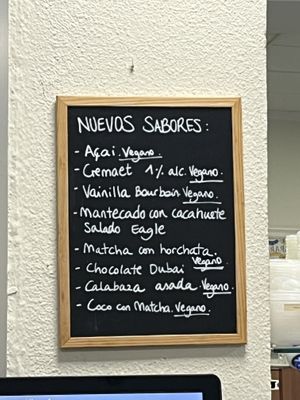 NUEVOS SABORES:
- Açai. Vegano.
- Cremaet 1% alc. Vegano.
- Vainilla Bourboin Vegano.
- Mantecado con cacahuete
Salado Eagle
- Matcha con horchata.
Vegano
- Chocolate Dubai
- Calabaza asada. Vegano.
- Coco con Matcha. Vegano.